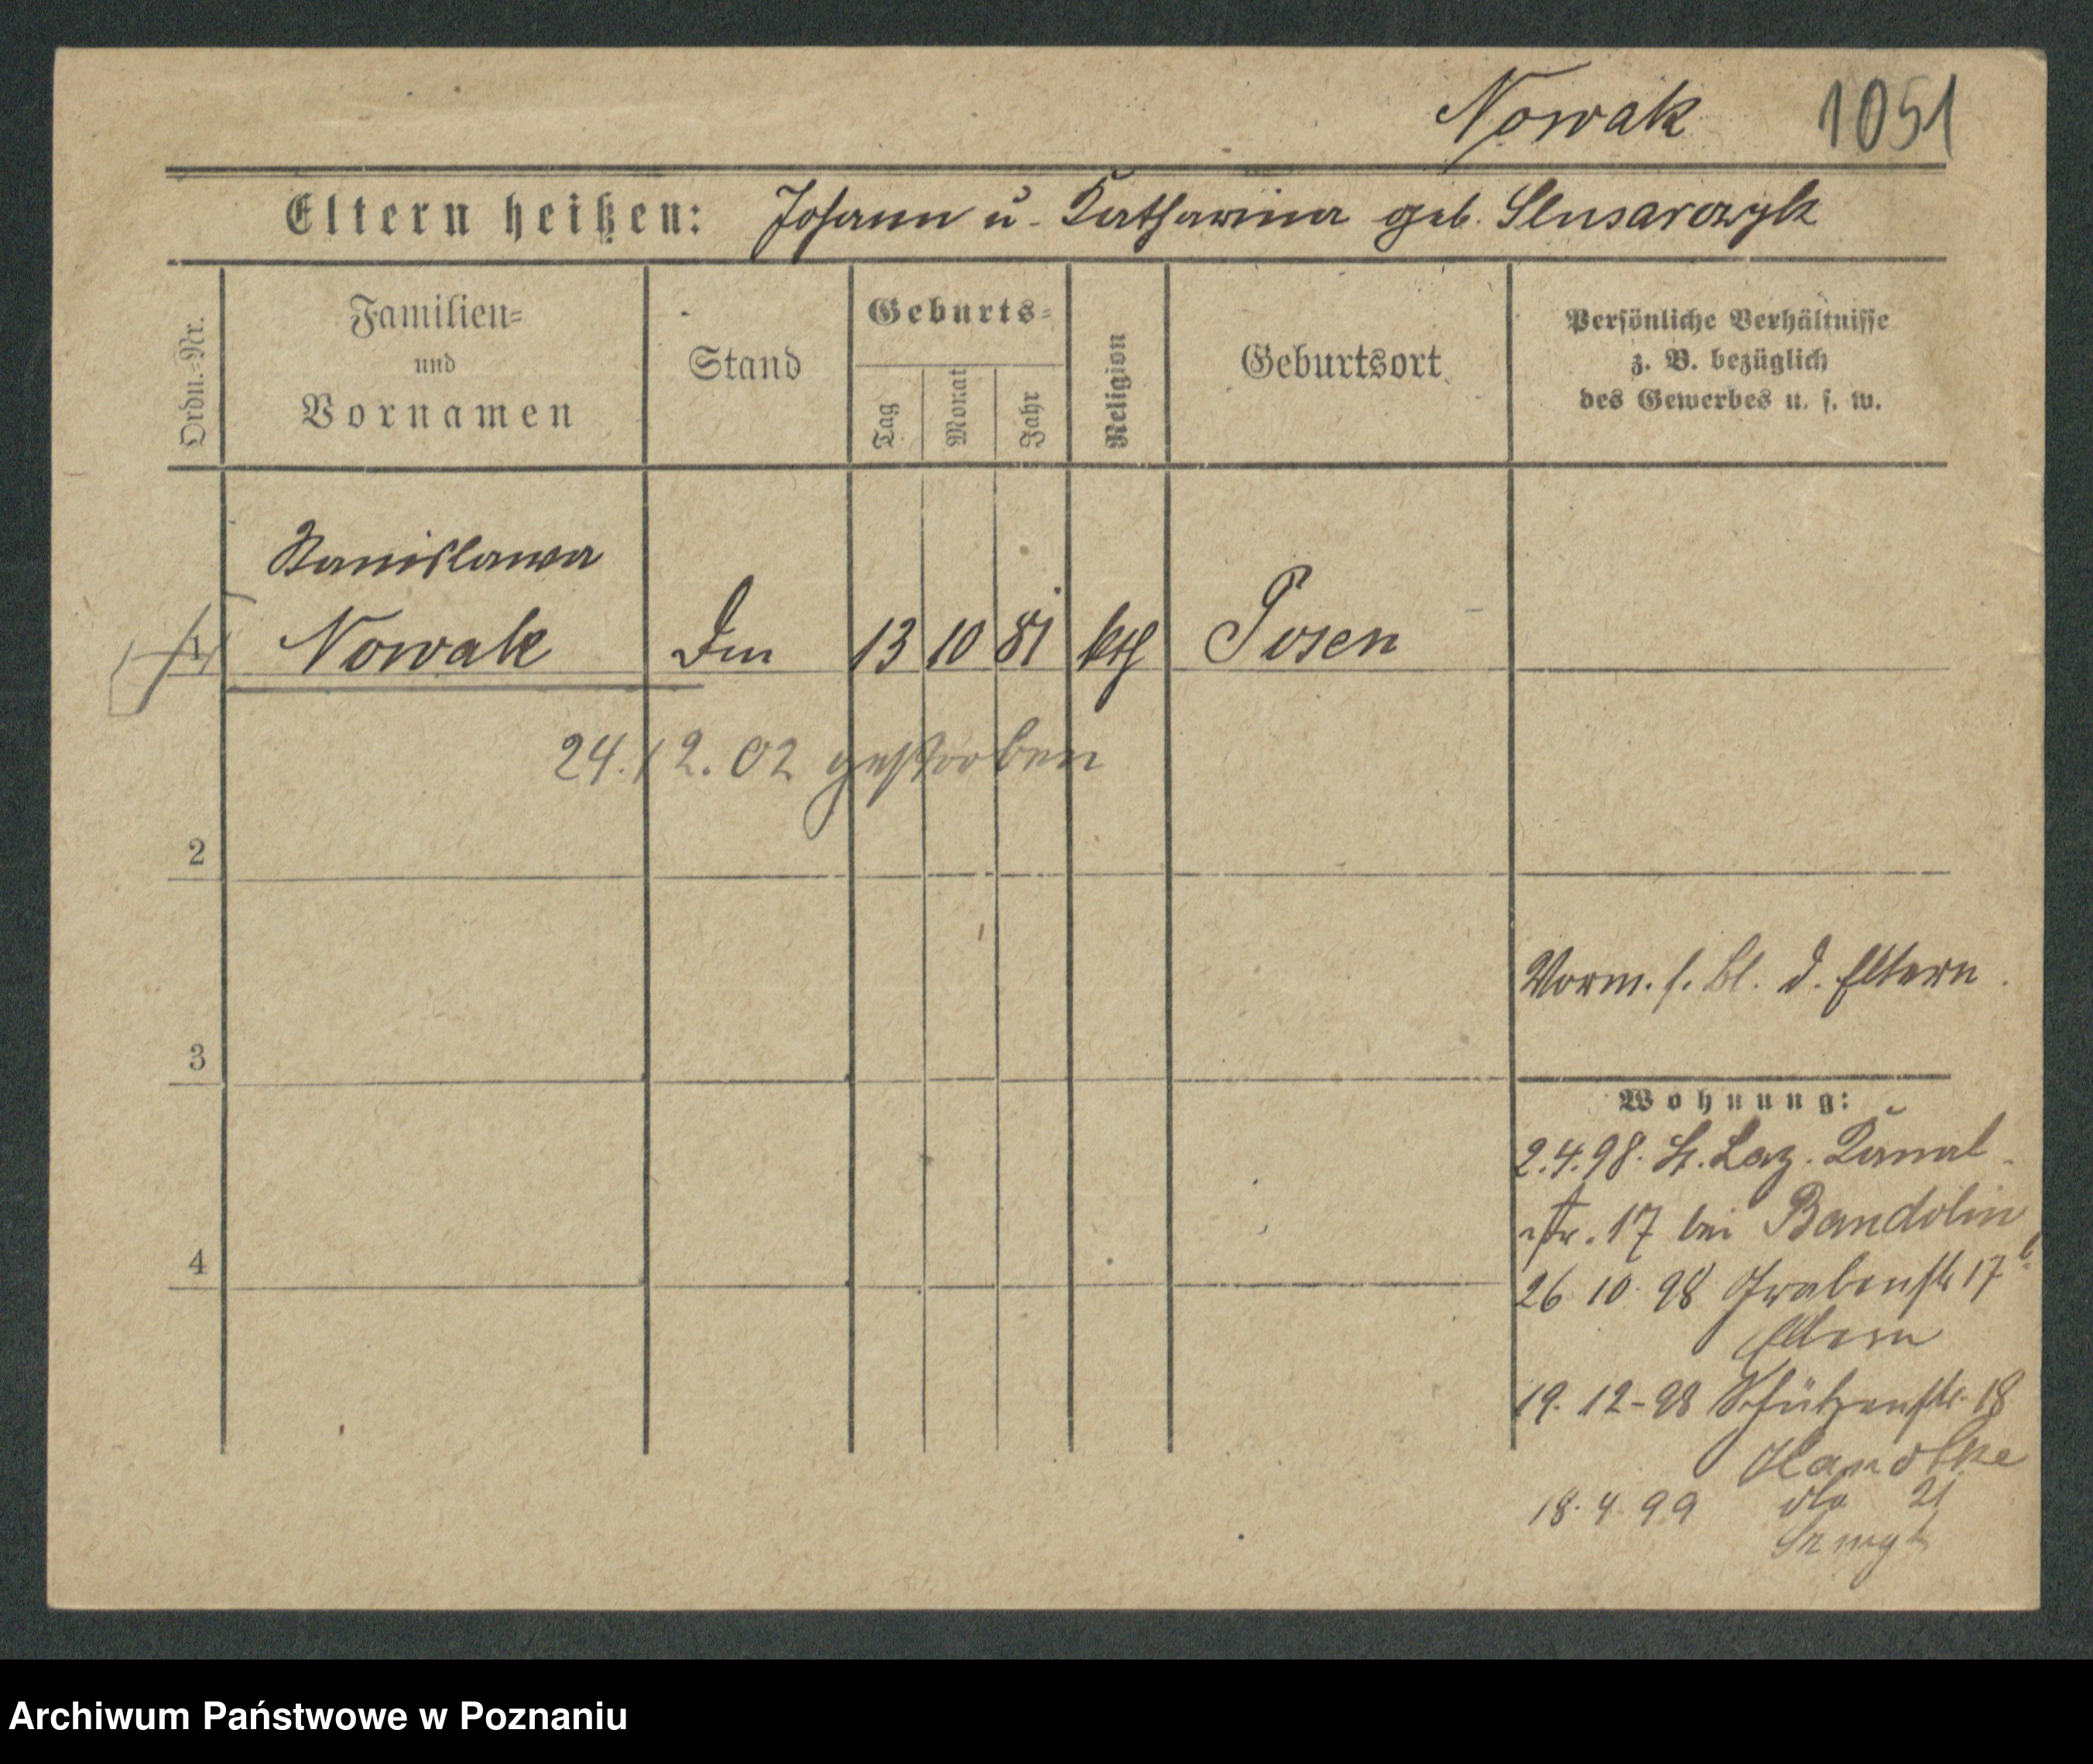 Nowak 1051
Eltern heißen: Johann u. Katharina geb. Slusarczyk
Ordn.=Nr.
Familien=
und
Vornamen
Stand
Geburts=
Tag
Monat
Jahr
Religion
Geburtsort
Persönliche Verhältnisse
z. B. bezüglich
des Gewerbes u. s. w.
Stanislawa
1 Nowak 13 10 81 kth Posen
24.12.02 gestorben
2
Vorm. s. Bl. d. Eltern.
3
Wohnung:
2.4.98. St. Laz. Kanal-
str. 17 bei Bandolin
4
26 10 98 Grabenstr 17b
Eltern
19.12-98 Schützenstr. 18
18.4.99 dto 21